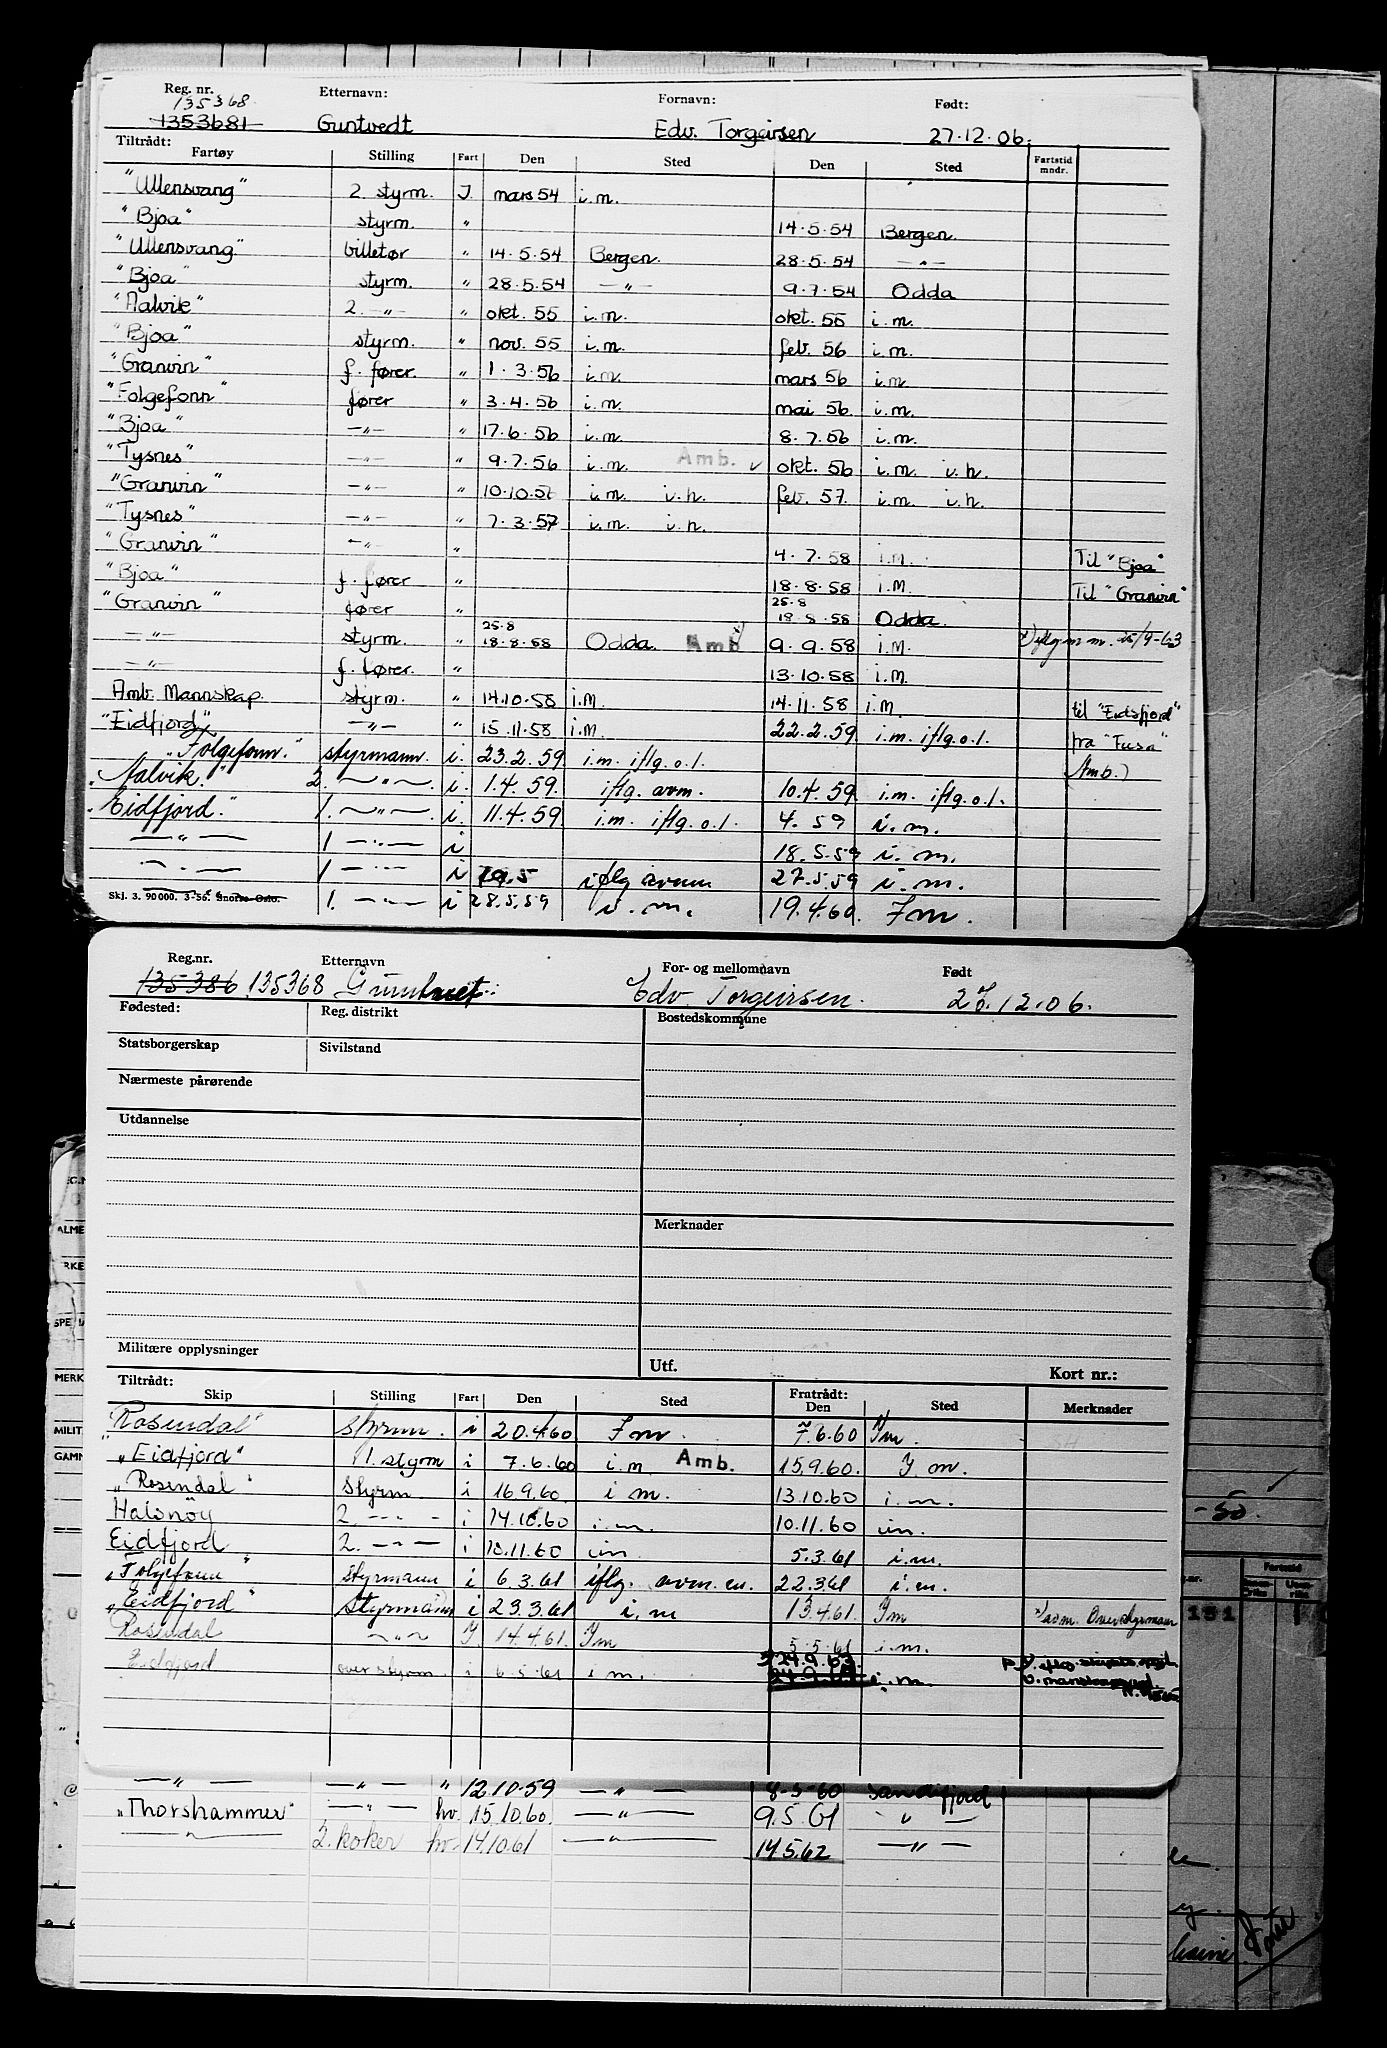 Reg. nr. Etternavn: Fornavn: Født:
135368
1353681 Guntvedt Edv. Torgeirsen 27.12.06.
Tiltrådt:
Fartøy Stilling Fart Den Sted Den Sted Fartstid mndr.
"Ullensvang" 2. styrm. I. mars 54 i.m.
"Bjoa" styrm. " 14.5.54 Bergen.
"Ullensvang" billetør " 14.5.54 Bergen. 28.5.54 —"—
"Bjoa" styrm. " 28.5.54 —"— 9.7.54 Odda
"Aalvik" 2. —"— " okt. 55 i.m. okt. 55 i.m.
"Bjoa" styrm. " nov. 55 i.m. feb. 56 i.m.
"Granvin" f. fører. " 1.3.56 i.m. mars 56 i.m.
"Folgefonn" fører " 3.4.56 i.m. mai 56. i.m.
"Bjoa" —"— " 17.6.56 i.m. 8.7.56 i.m.
"Tysnes" —"— " 9.7.56 i.m. Amb. v okt. 56 i.m. i.h.
"Granvin" —"— " 10.10.56 i.m. i.h. feb. 57. i.m. i.h.
"Tysnes" —"— " 7.3.57 i.m. i.h.
"Granvin" —"— " 4.7.58 i.m. Til "Bjoa"
"Bjoa" f. fører " 18.8.58 i.m. Til "Granvin"
25.8
"Granvin" fører " 18.8.58 Odda.
25.8
—"— styrm. " 18.8.58 Odda. Amb. 9.9.58 i.m.
—"— f. fører. 13.10.58 i.m.
Amb. Mannskap. styrm. " 14.10.58 i.m. 14.11.58 i.m. til "Eidsfjord"
"Eidfjord" —"— " 15.11.58 i.m. 22.2.59 i.m. iflg.o.l. fra "Fusa"
"Folgefonn." styrmann. i. 23.2.59 i.m. iflg.o.l. (Amb.)
"Aalvik." 2. —"— i. 1.4.59. iflg. avm. 10.4.59 i.m. iflg.o.l.
"Eidfjord." 1. —"— i. 11.4.59 i.m. iflg.o.l. 4.59 i.m.
—"— 1 —"— i 18.5.59 i.m.
—"— 1 —"— i 19.5 iflg avm 27.5.59 i.m.
Skj. 3. 90000. 3-56. Snorre Oslo. 1. —"— i 28.5.59 i.m. 19.4.60. Im.
Reg.nr. Etternavn For- og mellomnavn Født
135386 135368 Edv. Torgeirsen. 27.12.06.
Fødested: Reg. distrikt Bostedskommune
Statsborgerskap Sivilstand
Nærmeste pårørende
Utdannelse
Merknader
Militære opplysninger Utf. Kort nr.:
Tiltrådt: Fratrådt:
Skip Stilling Fart Den Sted Den Sted Merknader
Rosendal" styrm. i 20.4.60 Im 7.6.60 Im.
"Eidfjord" 1. styrm i 7.6.60 i.m Amb. 15.9.60. I m.
"Rosendal" Styrm i 16.9.60. i m. 13.10.60 i.m.
Halsnøy 2. —"— i 14.10.60 i.m. 10.11.60 im
Eidfjord 2. —"— i 10.11.60 im 5.3.61 i.m.
"Folgefonn" styrmann i 6.3.61 iflg. avm. 22.3.61 i.m.
"Eidfjord" styrmann i 23.3.61 i.m 13.4.61. Im avm. Overstyrmann
Rosendal —"— I. 14.4.61. Im 5.5.61 i.m.
Eidfjord overstyrm. i 6.5.61 i m. 24.9.63
i.m.
—"— —"— " 12.10.59 —"— 8-5-60 Sandefjord
"Thorshammer" —"— hv. 15.10.60. —"— 9.5.61 —"—
—"— 2. koker hv. 14.10.61 —"— 14.5.62 —"—
-50.
Fartstid
151